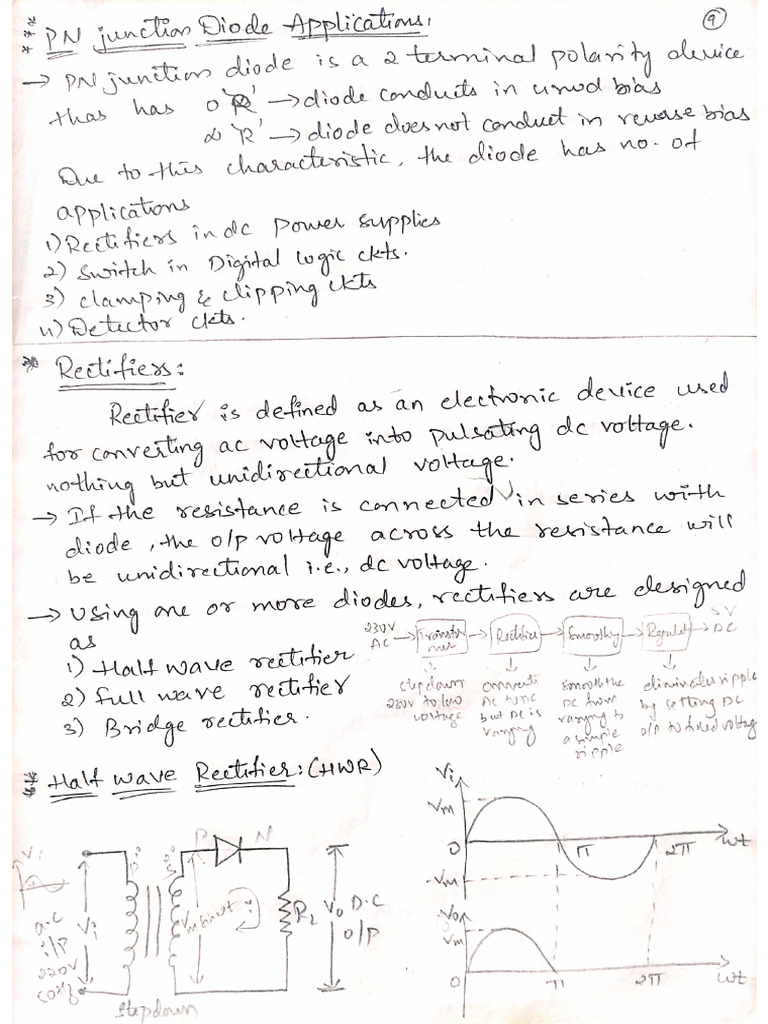 9
*** PN junction Diode Applications:
→ PN junction diode is a 2 terminal polarity device
thas has 0 'R' → diode conducts in unod bias
∞ 'R' → diode does not conduct in reverse bias
Due to this characteristic, the diode has no. of
applications
1) Rectifiers in dc power supplies
2) Switch in Digital logic ckts.
3) clamping & clipping ckts
4) Detector ckts.
* Rectifiers:
Rectifier is defined as an electronic device used
for converting ac voltage into pulsating dc voltage.
nothing but unidirectional voltage.
→ If the resistance is connected in series with
diode, the o/p voltage across the resistance will
be unidirectional i.e., dc voltage.
→ Using one or more diodes, rectifiers are designed
as
1) Half wave rectifier
2) full wave rectifier
3) Bridge rectifier.
230V AC → Transformer → Rectifier → Smoothing → Regulator → 5V DC
↓ ↓ ↓ ↓
stepdown 230V to low voltage
converts AC to DC but DC is varying
smooth the DC from varying to a simple ripple
eliminates ripple by setting DC o/p to fixed voltage
** Half wave Rectifier: (HWR)
Vi
Vm
0 π 2π wt
-Vm
Vo
Vm
0 π 2π wt
Vi
a.c
i/p
220V
50Hz
Vi
P N
Vm sinwt
i
RL
Vo D.C
o/p
Stepdown